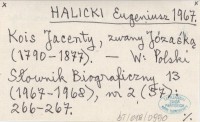 HALICKI Eugeniusz 1967.
Kois Jacenty, zwany Józaśką
(1790-1877). — W: Polski
Słownik Biograficzny 13
(1967-1968), nr 2 (57):
266-267.